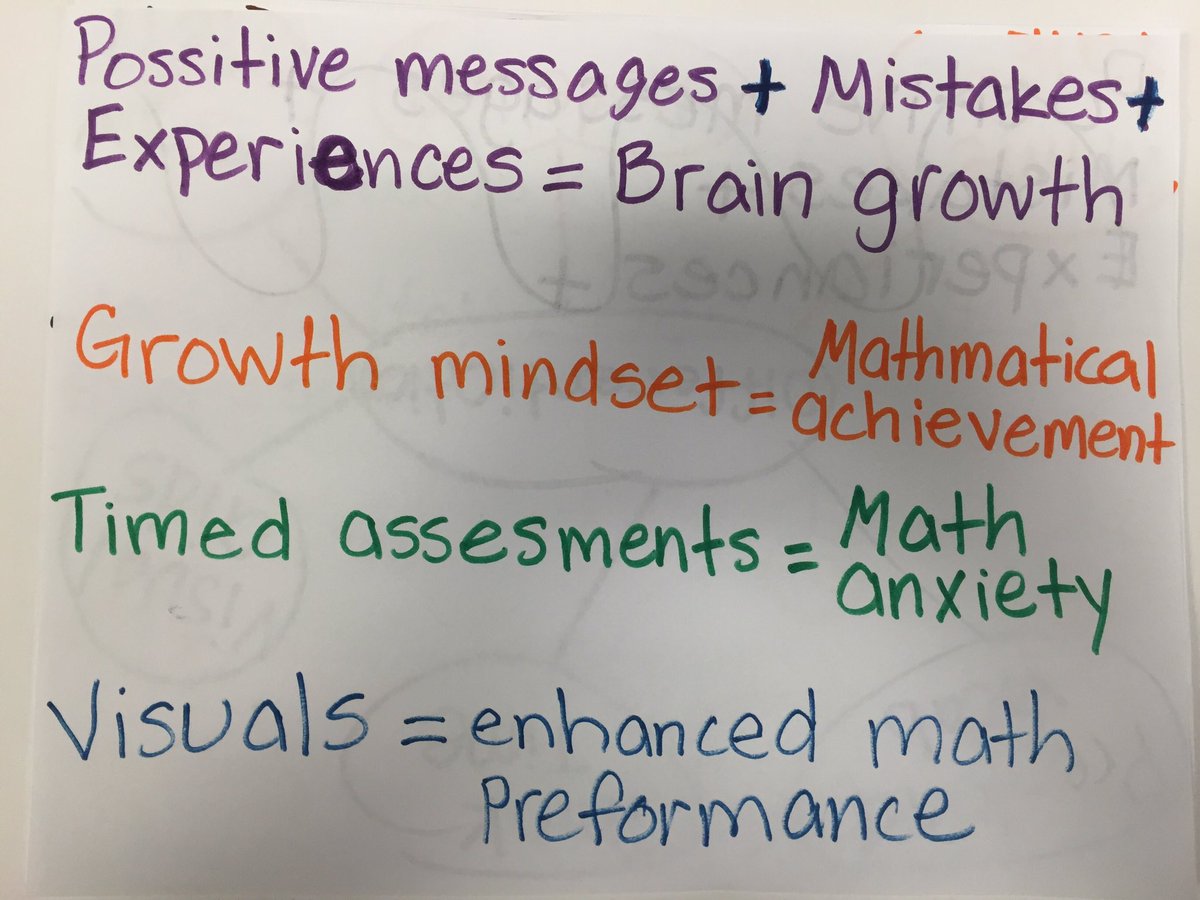 Possitive messages + Mistakes+
Experiences = Brain growth
Growth mindset = Mathmatical
achievement
Timed assesments = Math
anxiety
Visuals = enhanced math
Preformance